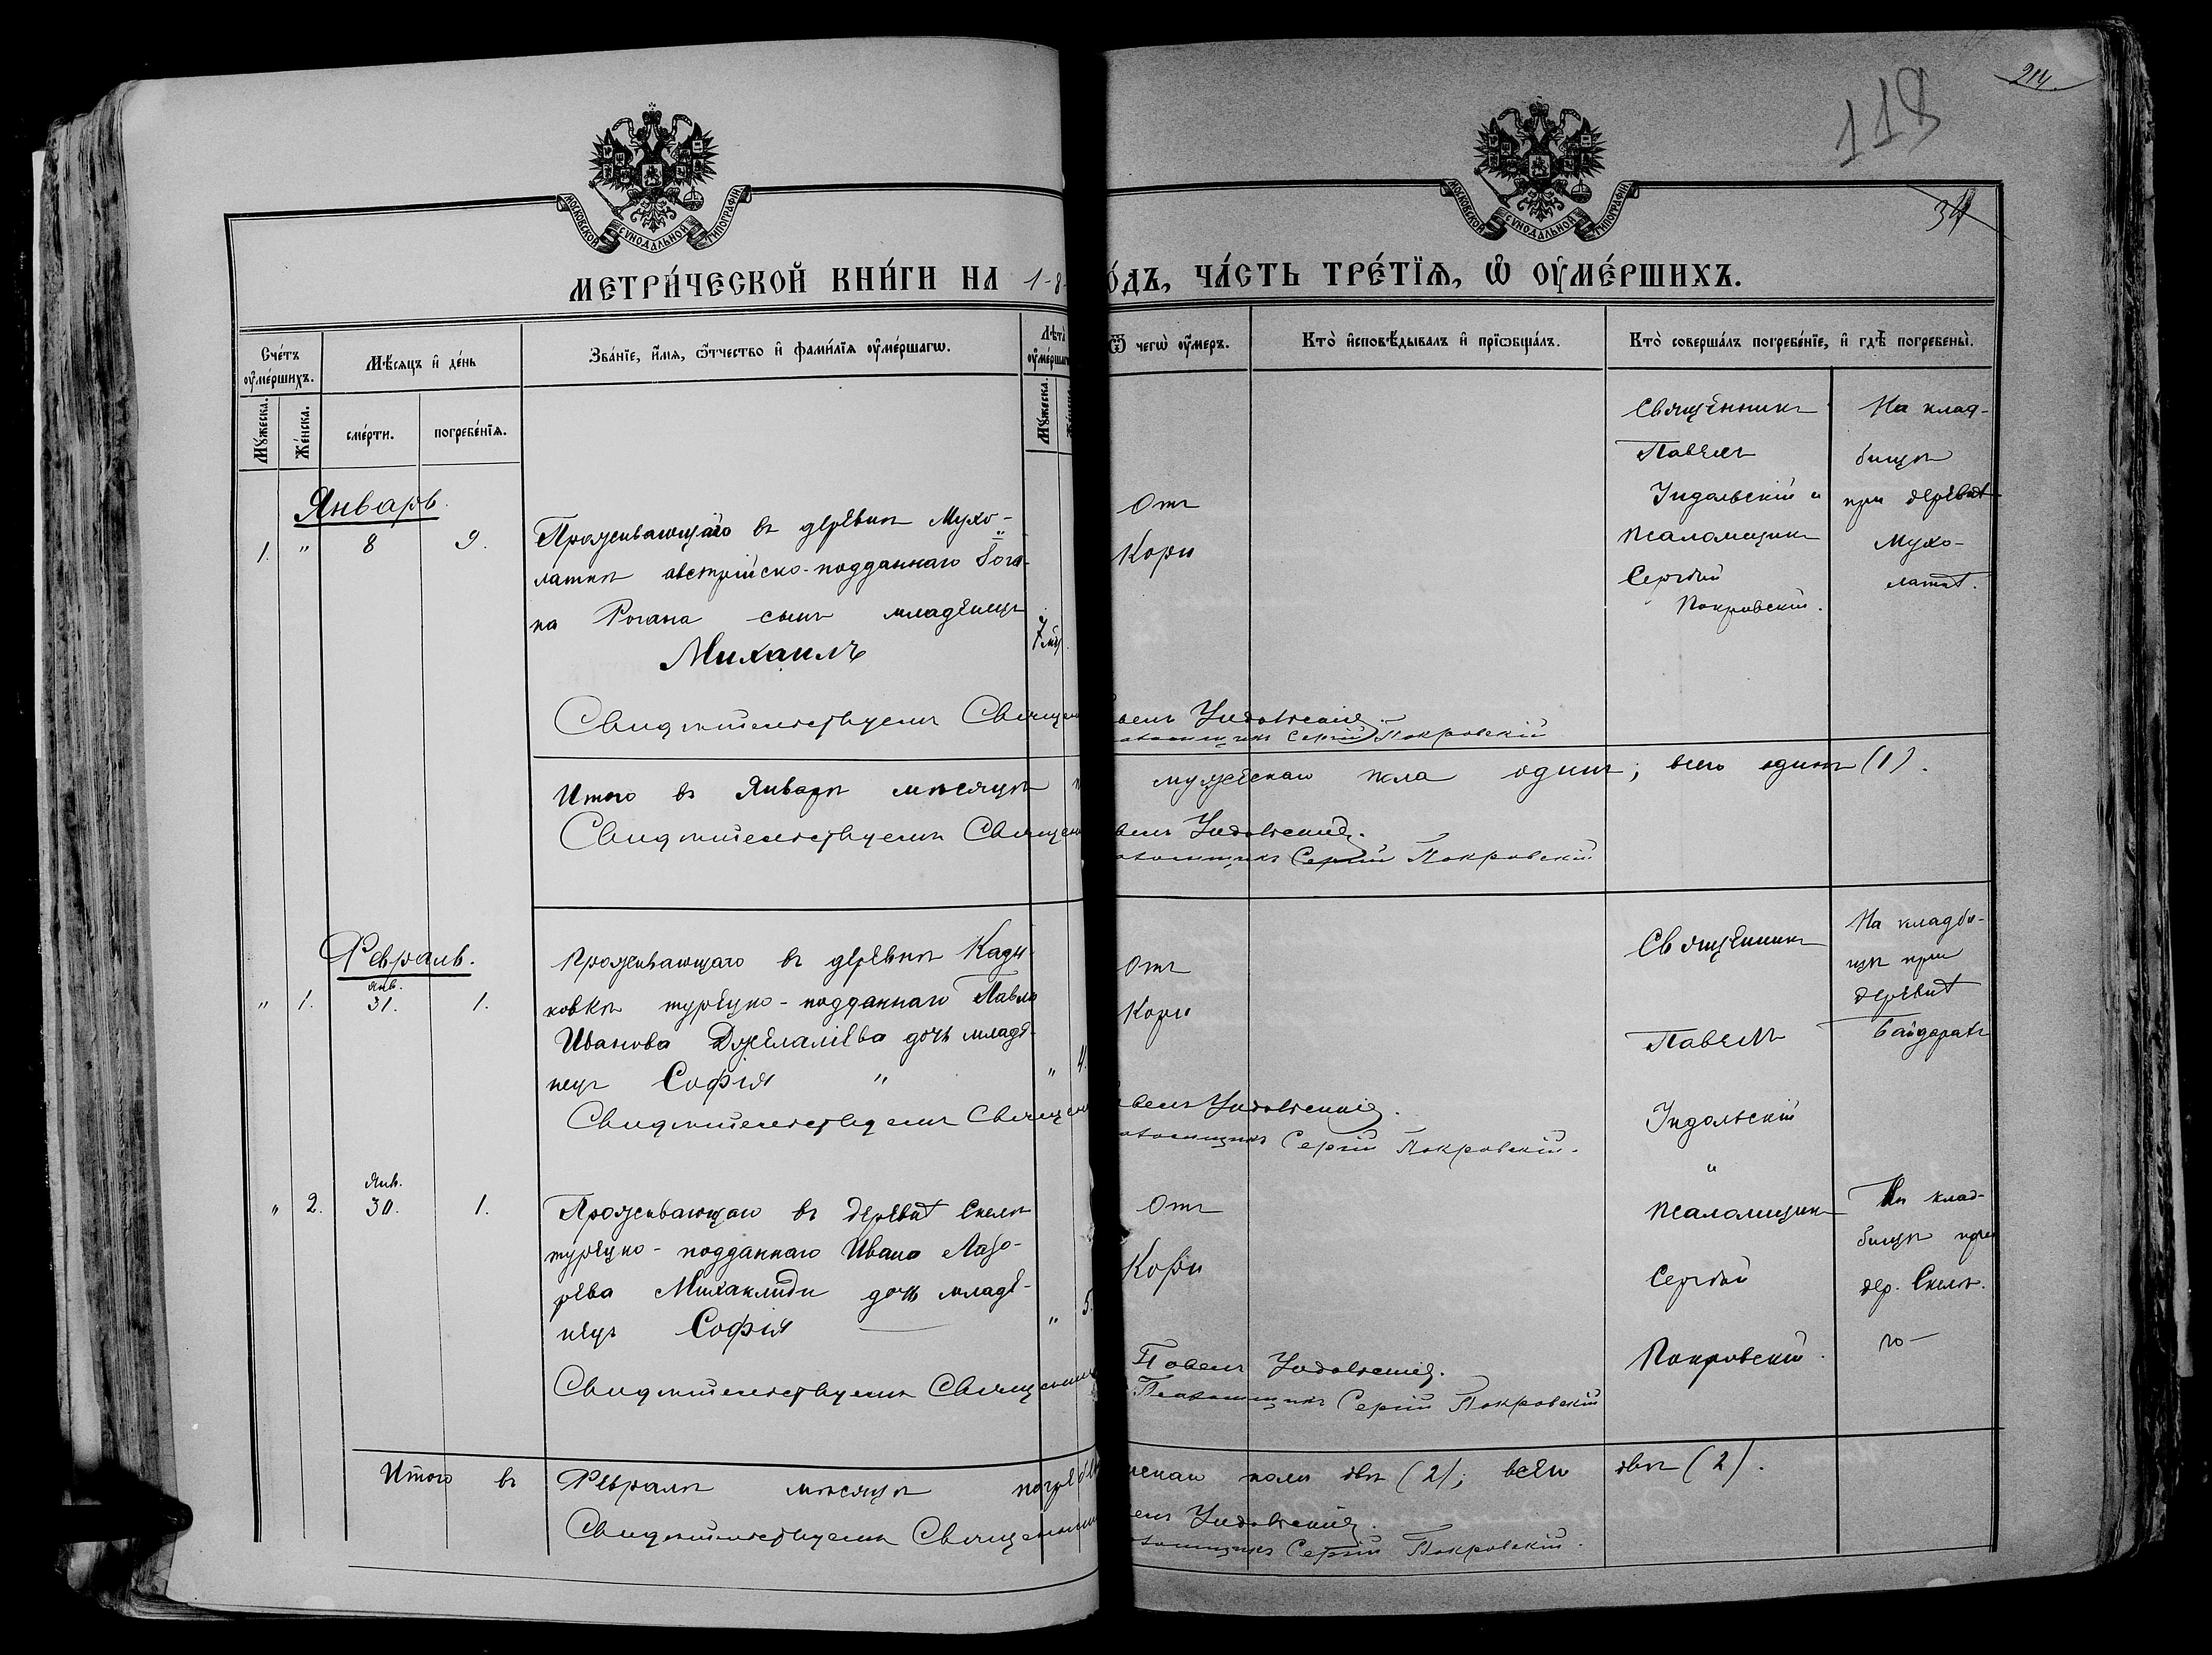 118
214
34
МОСКОВСКОЙ СѴНОДАЛЬНОЙ ТИПОГРАФІИ
МОСКОВСКОЙ СѴНОДАЛЬНОЙ ТИПОГРАФІИ
МЕТРИ́ЧЕСКОЙ КНИ́ГИ НА 1-8-
О́ДЪ, ЧА́СТЬ ТРЕ́ТІѦ, Ѡ ОУМЕ́РШИХЪ.
Сче́тъ оуме́ршихъ.
Мѣ́сяцъ и де́нь
Зва́нїе, и́мя, ѿтчество и фами́лїя оуме́ршагѡ.
Лѣта̀ оуме́ршаг
Ѿ чегѡ̀ оу́меръ.
Кто̀ и҆сповѣ́дывалъ и҆ прїѡбща́лъ.
Кто̀ соверша́лъ погребе́нїе, и҆ гдѣ̀ погребены̀.
Му́жеска.
Же́нска.
сме́рти.
погребе́нїя.
Му́жеска.
Январь.
1. " 8 9.
Проживающаго въ деревнѣ Мухо-
латкѣ австрійско-подданнаго
на Рогана сынъ младенецъ
Михаилъ
7 мѣ
Отъ
Кори
Священникъ
Павелъ
Индольскій и
псаломщикъ
Сергѣй
Покровскій.
На клад-
бищѣ
при деревнѣ
Мухо-
латкѣ.
Свидѣтельствуемъ Священ
велъ Индольскій.
аломщикъ Сергій Покровскій
Итого въ Январѣ мѣсяцѣ
мужескаго пола одинъ; всего одинъ (1).
Свидѣтельствуемъ Священ
велъ Индольскій.
аломщикъ Сергій Покровскій
Февраль.
" 1. Янв. 31. 1.
Проживающаго въ деревнѣ Кады-
ковкѣ турецко-подданнаго Павла
Иванова Джелалиева дочь младе-
нецъ София "
" 4.
Отъ
Кори
Священникъ
Павелъ
Индольскій
"
псаломщикъ
Сергѣй
Покровскій.
На кладби-
щѣ при
деревнѣ
Байдарахъ
Свидѣтельствуемъ Священ
велъ Индольскій.
аломщикъ Сергій Покровскій.
" 2. Янв. 30. 1.
Проживающаго въ деревнѣ Скели
турецко-подданнаго Ивана Лаза-
рева Михаилиди дочь младе-
нецъ София
" 5.
Отъ
Кори
На клад-
бищѣ при
дер. Скели.
Свидѣтельствуемъ Священникъ
Павелъ Индольскій.
Псаломщикъ Сергій Покровскій
Итого въ Февралѣ мѣсяцѣ погребе
женскаго пола двѣ (2); всего двѣ (2).
Свидѣтельствуемъ Священник
велъ Индольскій.
аломщикъ Сергій Покровскій.